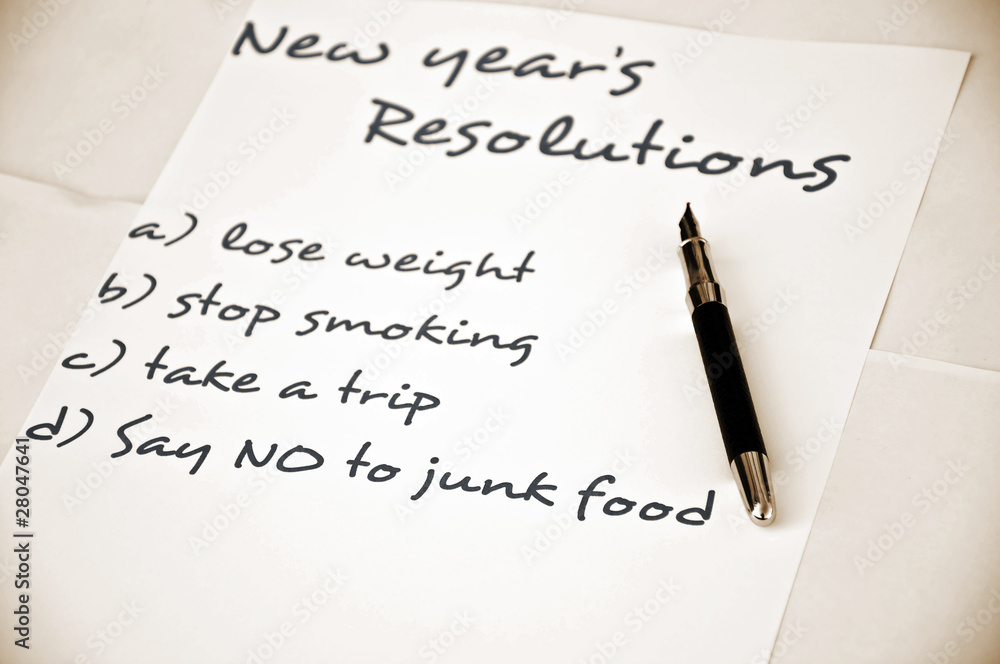 New year's
Resolutions
a) lose weight
b) stop smoking
c) take a trip
d) Say NO to junk food
Adobe Stock | #28047641